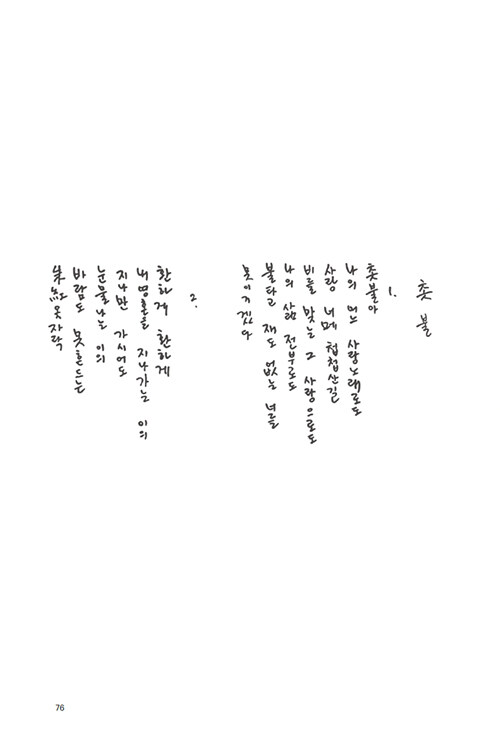 촛불
1.
촛불아
나의 어느 사랑노래로도
사랑 너메 첩첩산길
비를 맞는 그 사랑으로도
나의 삶 전부로도
불타고 재도 없는 너를
못이기겠다
2.
환하게 환하게
내 영혼을 지나가는 이의
지나만 가시어도
눈물나는 이의
바람도 못흔드는
옷자락
76